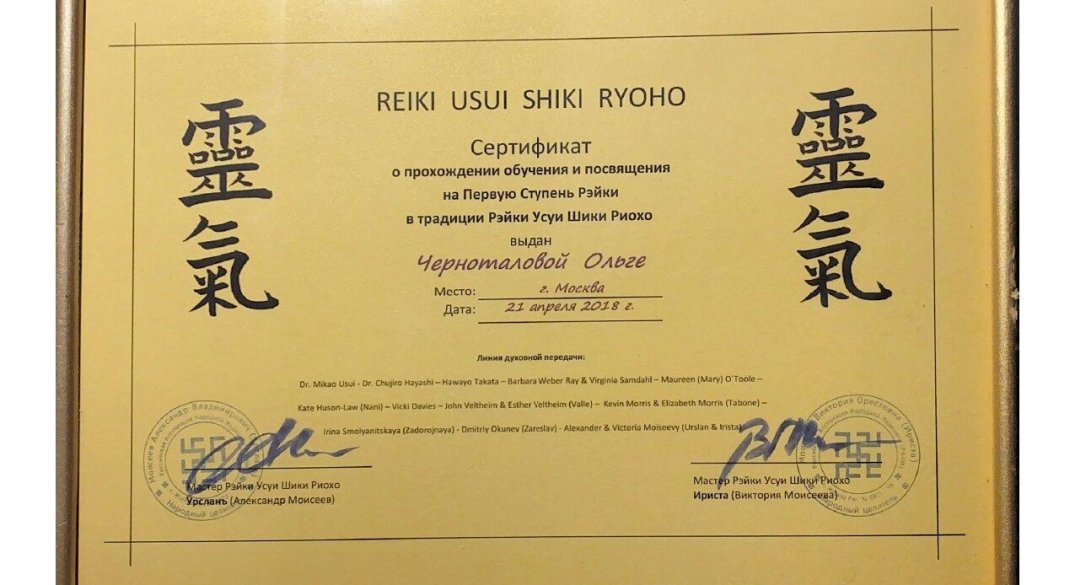 REIKI USUI SHIKI RYOHO
靈氣
靈氣
Сертификат
о прохождении обучения и посвящения
на Первую Ступень Рэйки
в традиции Рэйки Усуи Шики Риохо
выдан
Черноталовой Ольге
Место: г. Москва
Дата: 21 апреля 2018 г.
Линия духовной передачи:
Dr. Mikao Usui - Dr. Chujiro Hayashi – Hawayo Takata – Barbara Weber Ray & Virginia Samdahl – Maureen (Mary) O`Toole –
Kate Huson-Law (Nani) – Vicki Davies – John Veltheim & Esther Veltheim (Valle) – Kevin Morris & Elizabeth Morris (Tabone) –
Irina Smolyanitskaya (Zadorojnaya) - Dmitriy Okunev (Zareslav) - Alexander & Victoria Moiseevy (Urslan & Irista)
Мастер Рэйки Усуи Шики Риохо
Урсланъ (Александр Моисеев)
Мастер Рэйки Усуи Шики Риохо
Ириста (Виктория Моисеева)
Моисеев Александр Владимирович
Народный целитель
Виктория Орестовна (Ириста)
Народный целитель